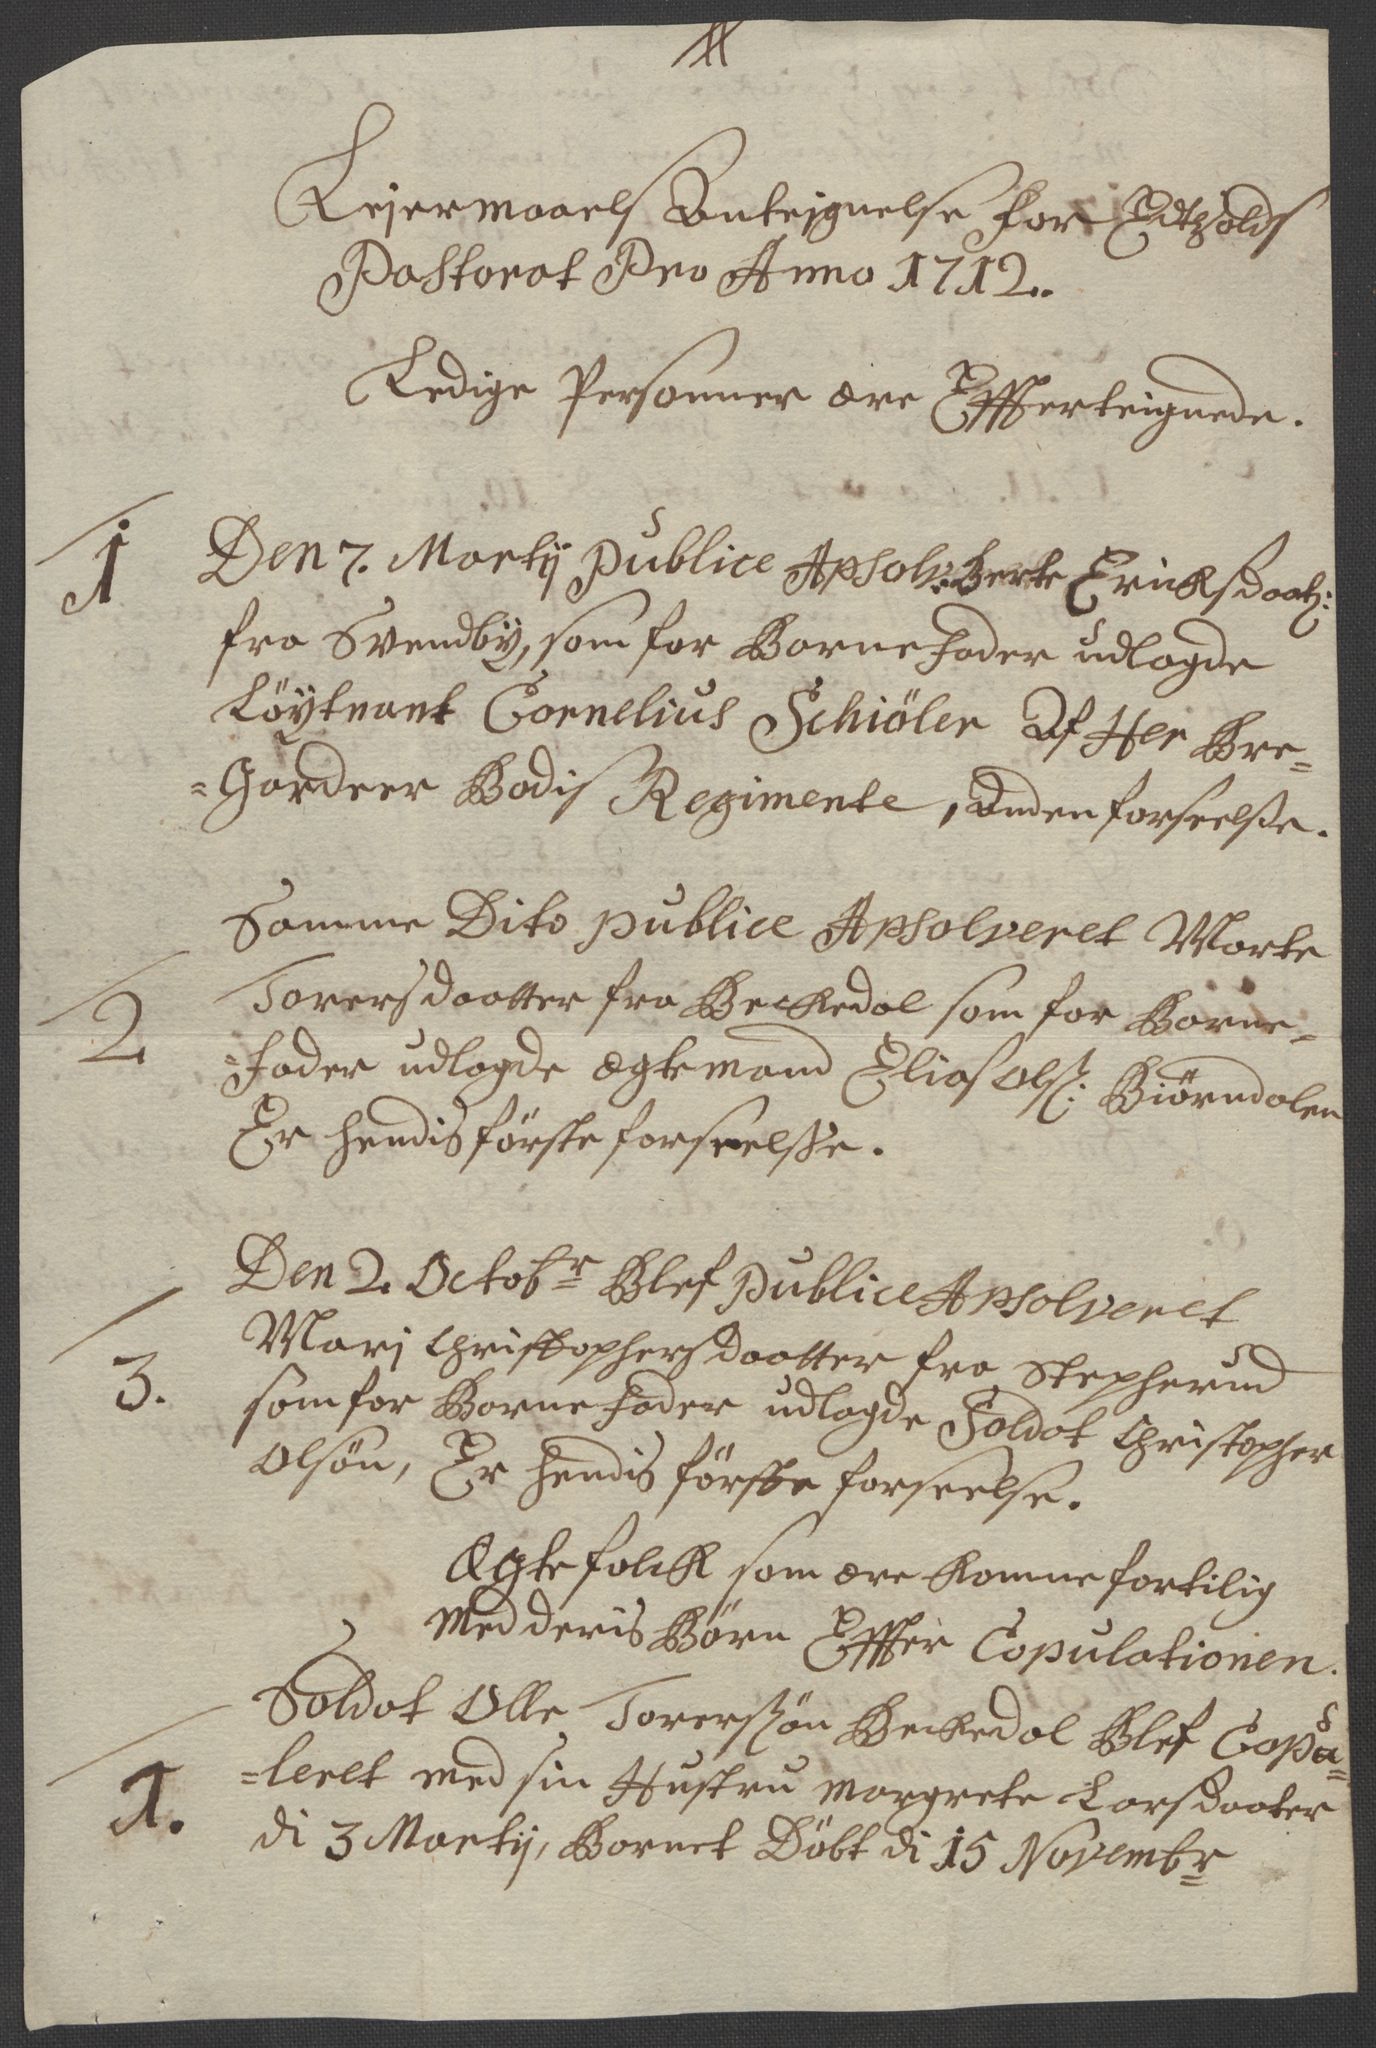 Lejermaaels Anteignelse for Edtzvolds
Pastorat Pro Anno 1712.
Ledige Personner ære Effterteignede.
1 Den 7. Martij publice Apsolv: Berte Ericksdaatz:
fra Svendby, som for Barnefader udlagde
Löytnant Cornelius Schiöler Af Her Bre=
=Gardeer Bodis Regimente, Anden forseelsse.
Samme Dito publice Apsolveret Marte
2 Torersdaatter fra Beckedal som for Barne=
=fader udlagde ægtemand Elias Olss: Biörndalen
Er hendis förste forseelsse.
Den 2. Octobr Blef publice Apsolveret
Marj Christophersdaatter fra Stepherud
3. som for Barnefader udlagde Soldat Christopher
Olsön, Er hendis förste forseelse.
Ægtefolck som ære komne fortilig
Med deris Börn Effter Copulationen.
Soldat Olle Torerssön Beckedal Blef Copu=
1. =leret med sin Hustru Margrete Larsdaater
di 3 Martij, Barnet Döbt di 15 Novembr